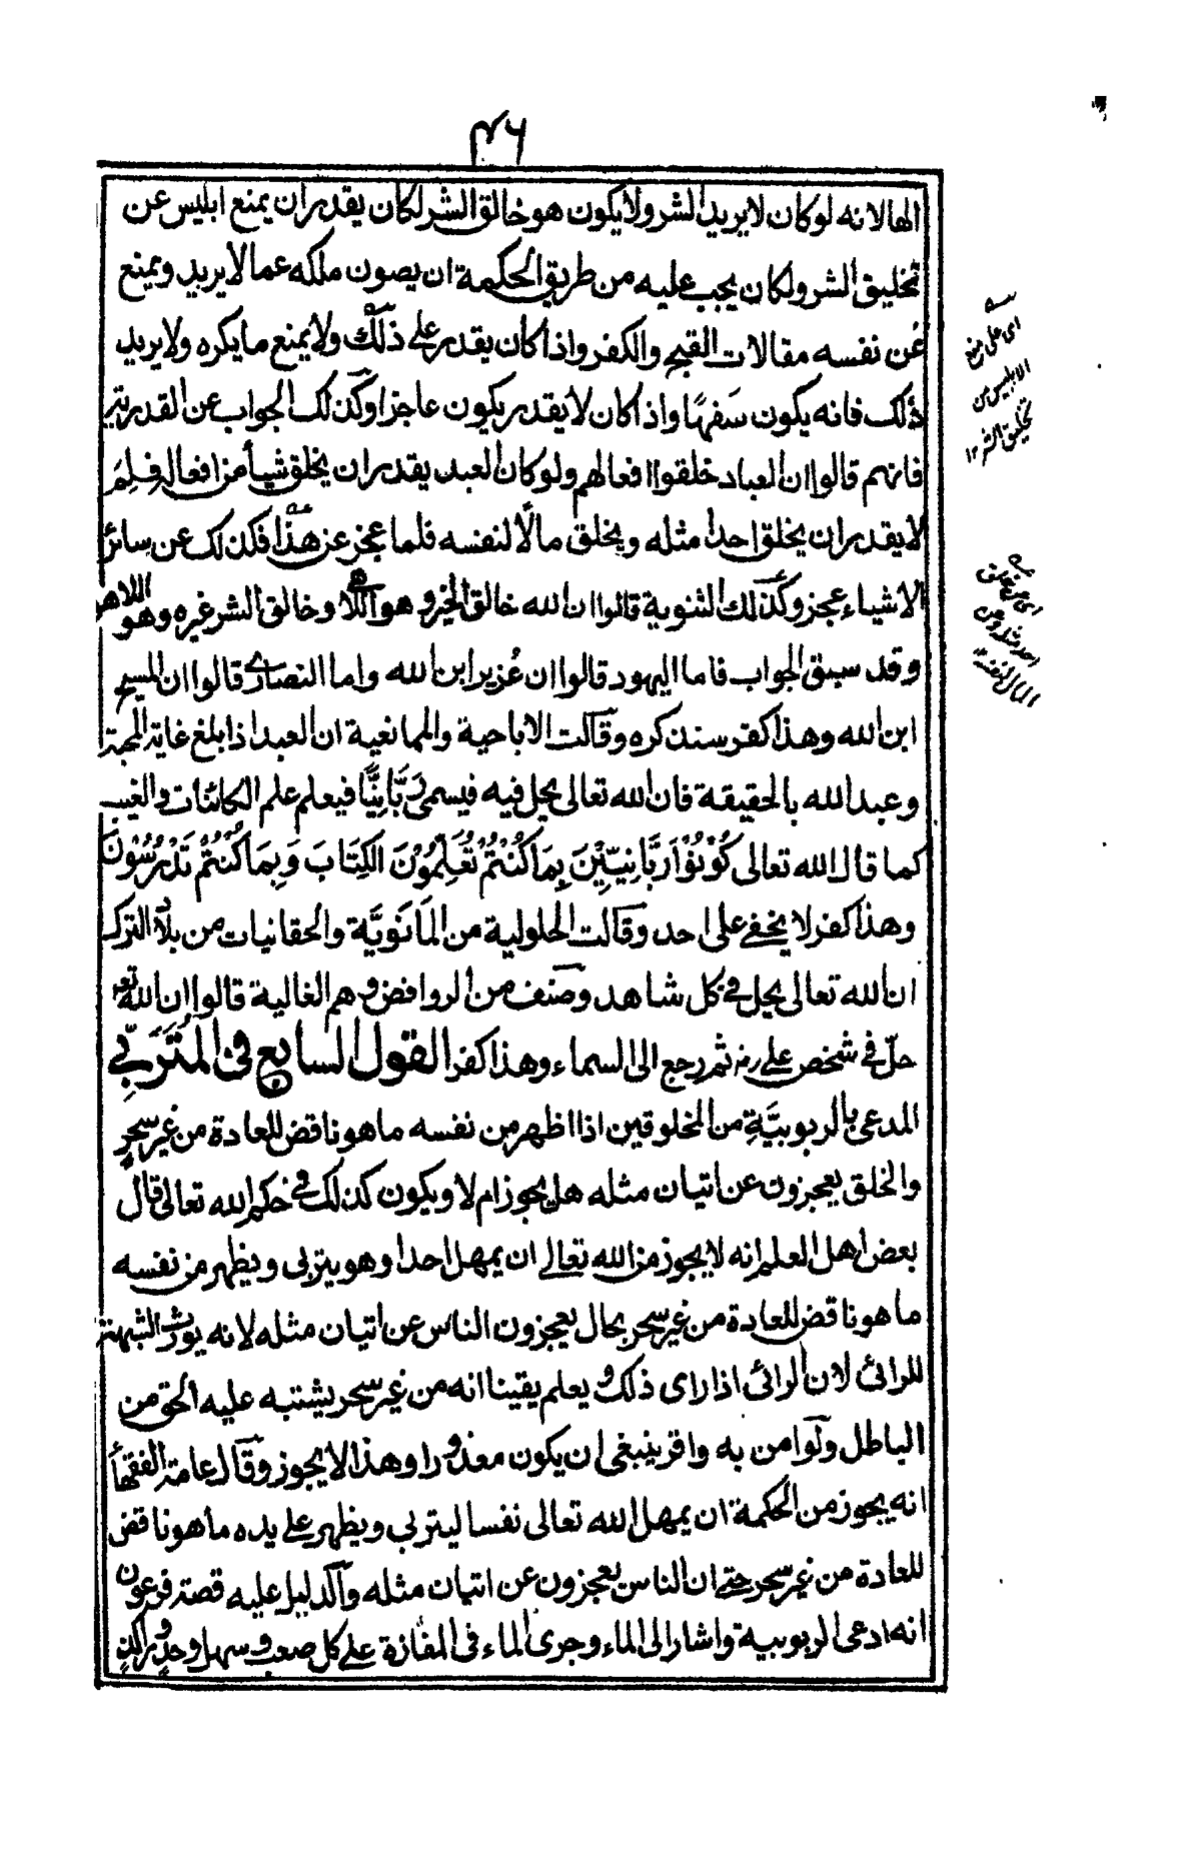 ٤٦
الها لانه لو كان لا يريد الشر ولا يكون هو خالق الشر لكان يقدر ان يمنع ابليس عن
تخليق الشر ولكان يجب عليه من طريق الحكمة ان يصون ملكه عما لا يريد ويمنع
عن نفسه مقالات القبح والكفر واذا كان يقدر على ذلك ولا يمنع ما يكره ولا يريد
ذلك فانه يكون سفيها واذا كان لا يقدر يكون عاجزا وكذلك الجواب عن القدرية
فانهم قالوا ان العباد خلقوا افعالهم ولو كان العبد يقدر ان يخلق شيأ من افعاله فلِمَ
لا يقدر ان يخلق احدا مثله ويخلق مالًا لنفسه فلما عجز عن هذا فكذلك عن سائر
الاشياء عجز وكذلك الثنوية قالوا ان الله خالق الخير وهو اللاهي وخالق الشر غيره وهو اللاهر
وقد سبق الجواب فاما اليهود قالوا ان عُزير ابن الله واما النصارى قالوا ان المسيح
ابن الله وهذا كفر سنذكره وقالت الاباحية والمانعية ان العبد اذا بلغ غاية المحبة
وعبد الله بالحقيقة فان الله تعالى يحل فيه فيسمى رَبَّانِيًّا فيعلم علم الكائنات والغيب
كما قال الله تعالى كُوْنُوْا رَبَّانِيِّيْنَ بِمَا كُنْتُمْ تُعَلِّمُوْنَ الكِتَابَ وَبِمَا كُنْتُمْ تَدْرُسُوْنَ
وهذا كفر لا يخفى على احد وقالت الحلولية من المَانَوِيَّة والحقانيات من بلاد الترك
ان الله تعالى يحل في كل شاهد وصنف من الروافض وهم الغالية قالوا ان الله تعه
حلّ في شخص على رض ثم رجع الى السماء وهذا كفر القول السابع في المُتَرَبِّي
المدعى بالربوبيَّةِ من المخلوقين اذا اظهر من نفسه ما هو ناقض للعادة من غير سحرٍ
والخلق يعجزون عن اتيان مثله هل يجوز ام لا ويكون كذلك في حكم الله تعالى قال
بعض اهل العلم انه لا يجوز من الله تعالى ان يمهل احدا وهو يتربى ويظهر من نفسه
ما هو ناقض للعادة من غير سحر بحال يعجزون الناس عن اتيان مثله لانه يورث الشبهة
للرائى لان الرائى اذا راى ذلك ويعلم يقينا انه من غير سحر يشتبه عليه الحق من
الباطل ولو امن به واقر ينبغى ان يكون معذورا وهذا لا يجوز وقال عامة الفقهاء
انه يجوز من الحكمة ان يمهل الله تعالى نفسا ليتربى ويظهر على يده ما هو ناقض
للعادة من غير سحر حتى ان الناس يعجزون عن اتيان مثله والدليل عليه قصة فرعون
انه ادعى الربوبية واشار الى الماء وجرى الماء في المفازة على كل صعب وسهل وحدور
اى على منع
الابليس من
تخليق الشر ١٢
احد مثله وعن
المال لنفسه